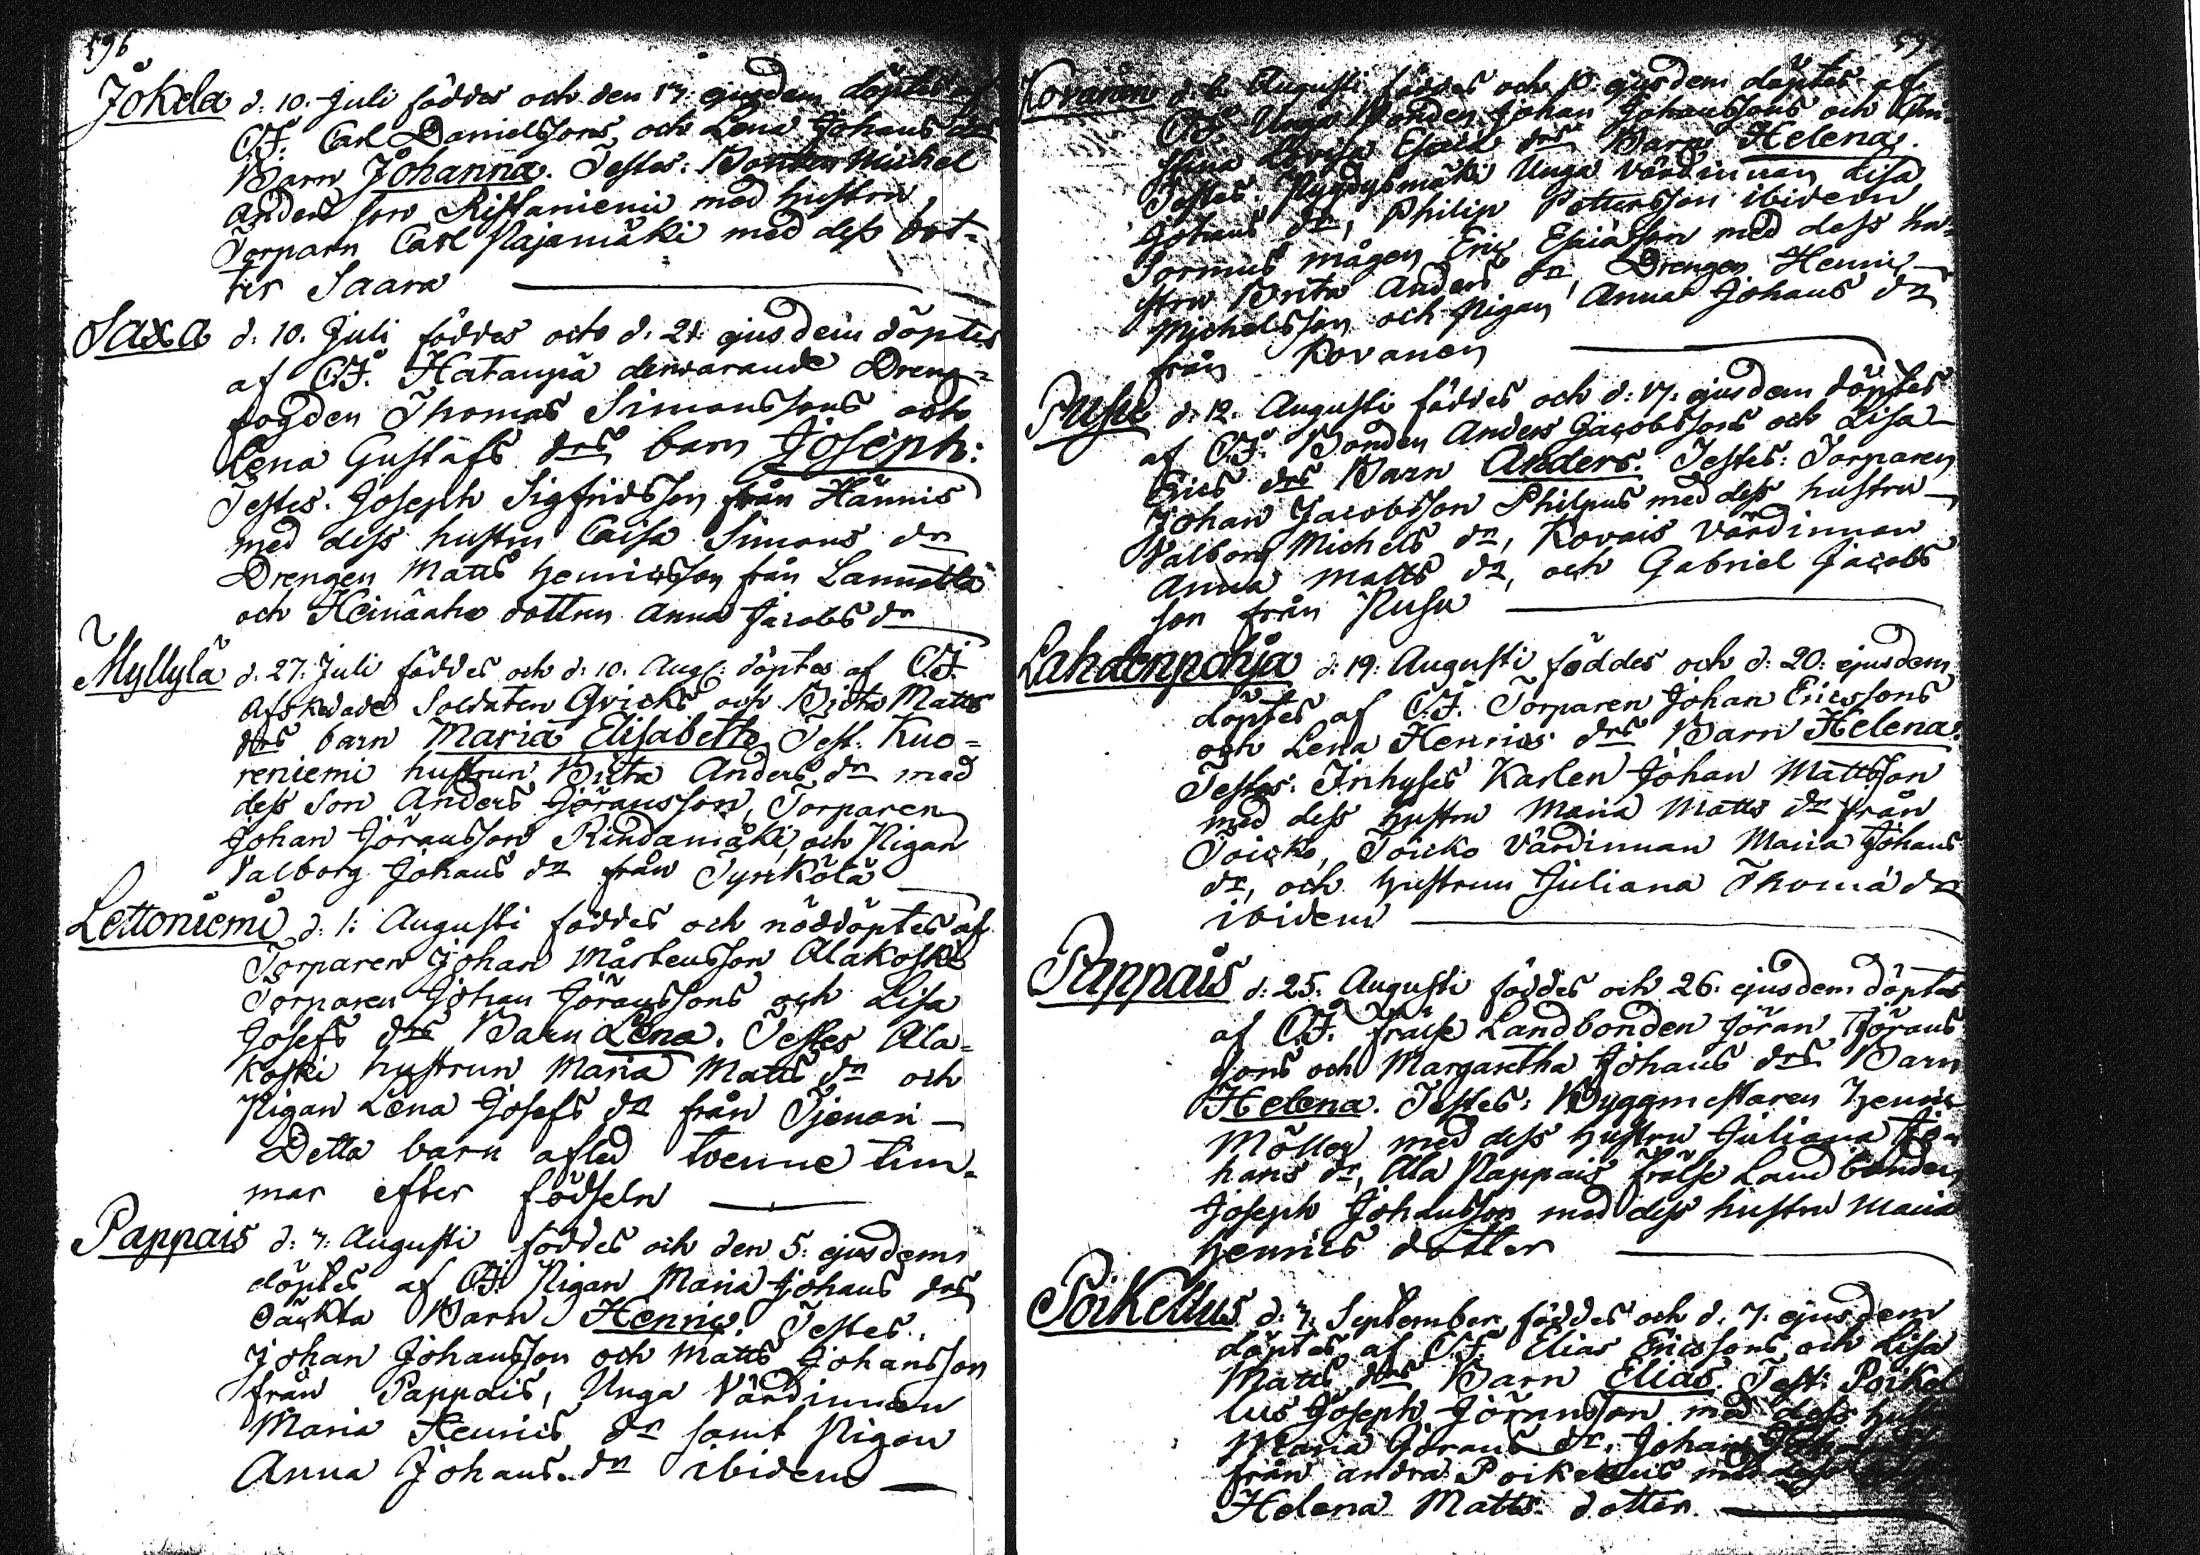 596
Jokela d. 10. Juli föddes och den 17. ejusdem döptes af
C.F. Carl Danielssons och Lena Johans drs
Barn Johanna. Testes: Bonden Michel
Anders son Ristaniemi med hustru,
Torparn Carl Pajamäki med dess dot=
ter Saara
Saxa d. 10. Juli föddes och d. 21 ejusdem döptes
af C.F. Hatanpä denvarande Dreng=
fogden Thomas Simonssons och
Lena Gustafs drs barn Joseph:
Testes. Joseph Sigfridsson från Hännis
med dess hustru Caisa Simons dr
Drengen Matts Henricsson från Lammela
och Heinäaho dottren Anna Jacobs dr
Myllylä d. 27. Juli föddes och d. 10. Aug: döptes af C.F.
Afskedade Soldaten Qvicks och Brita Matts
drs barn Maria Elisabeth. Test: Kuo=
reniemi hustrun Brita Anders dr med
dess Son Anders Göransson, Torparen
Johan Göransson Rindamäki, och Pigan
Valborg Johans dr från Tyrkölä
Lettoniemi d. 1: Augusti föddes och nöddöptes af
Torparen Johan Mårtensson Alakoski
Torparen Johan Göranssons och Lisa
Josefs drs Barn Lena. Testes Ala=
koski hustrun Maria Matts dr och
Pigan Lena Josefs dr från Tjenari
Detta barn afled tvenne tim=
mar efter födseln
Pappais d: 4: Augusti föddes och den 5: ejusdem
döptes af C.F. Pigan Maria Johans drs
oäckta Barn Henric. Testes.
Johan Johansson och Matts Johansson
från Pappais, Unga Värdinnan
Maria Henrics dr samt Pigan
Anna Johans dr ibidem
Kovanen d. 6. Augusti föddes och 10 ejusdem döptes af
C.F. Unga Bonden Johan Johanssons och Chri=
stina Lovisa Esaiæ drs Barn Helena.
Testes: Unga Värdinnan Lisa
Johans dr, Philip Pettersson ibidem
Sormus mågen Eric Esaiasson med dess hu=
stru Brita Anders dr, Drengen Henric
Michelsson och Pigan Anna Johans dr
från Kovanen
Pusu d: 12. Augusti föddes och d: 17. ejusdem döptes
af C.F. Bonden Anders Jacobssons och Lisa
Erics drs Barn Anders. Testes: Torparen
Johan Jacobsson Philpus med dess hustru
Valborg Michels dr, Kovais Värdinnan
Anna Matts dr, och Gabriel Jacobs
son från Pusu
Lahdenpohja d: 19. Augusti föddes och d: 20. ejusdem
döptes af C.F. Torparen Johan Ericssons
och Lena Henrics drs Barn Helena:
Testes: Inhyses Karlen Johan Mattsson
med dess hustru Maria Matts dr från
Toicko, Toicko Värdinnan Maria Johans
dr, och hustrun Juliana Thomæ dr
ibidem
Pappais d: 25. Augusti föddes och 26. ejusdem döptes
af C.F. Frälse Landbonden Jöran Görans
sons och Margaretha Johans drs Barn
Helena. Testes: Byggmestaren Henric
Möller med dess hustru Juliana Jo=
hans dr, Ala Pappais frälse Landbonden
Joseph Johansson med dess hustru Maria
Henrics dotter
Poikellus d: 4. September föddes och d. 7. ejusdem
döptes af C.F. Elias Ericssons och Lisa
Matts drs Barn Elias. Test: Poikel
lus Joseph Göransson med dess hust
Maria Görans dr, Johan
från andra Poikellus med dess
Helena Matts dotter.